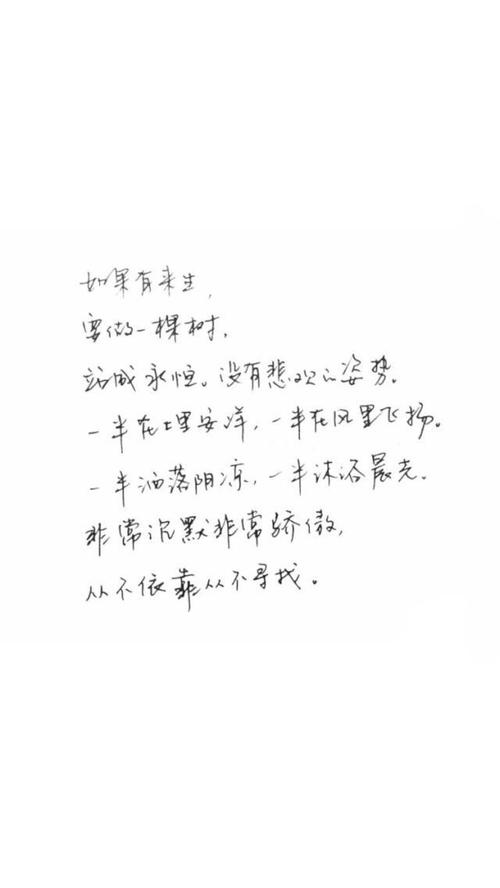 如果有来生，
要做一棵树，
站成永恒。没有悲欢的姿势。
一半在土里安详，一半在风里飞扬。
一半洒落阴凉，一半沐浴晨光。
非常沉默非常骄傲，
从不依靠从不寻找。